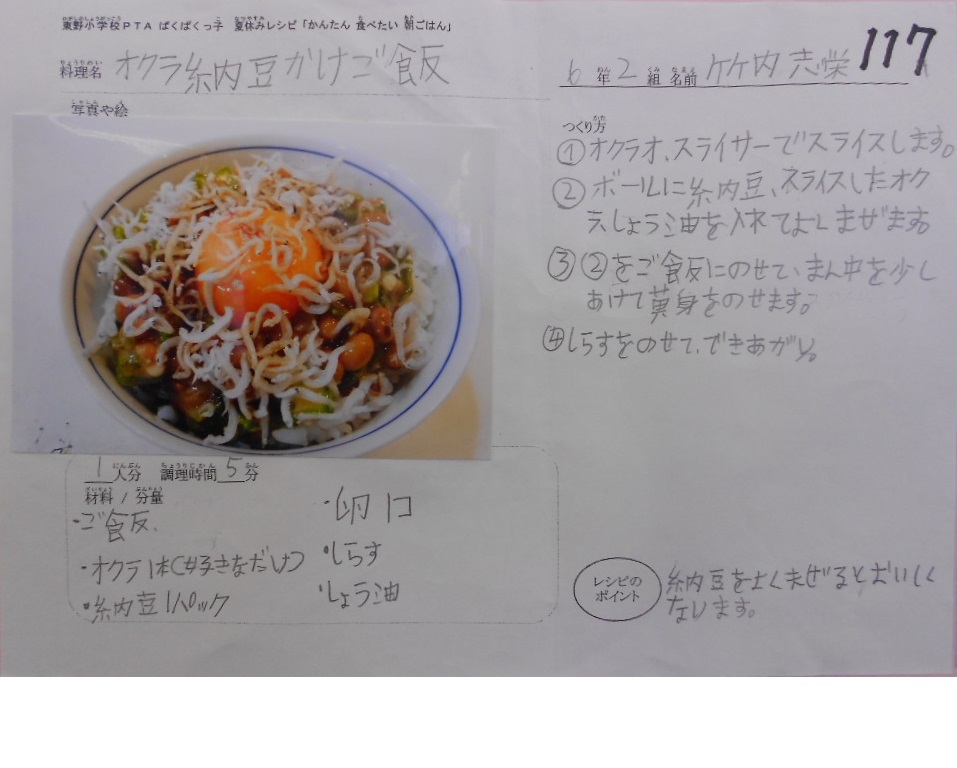 東野小学校PTA ぱくぱくっ子 夏休みレシピ「かんたん 食べたい 朝ごはん」
料理名 オクラ納豆かけご飯
6年2組 名前 竹内志栄
117
写真や絵
つくり方
①オクラオ、スライサーでスライスします。
②ボールに納豆、スライスしたオク
ラ、しょう油を入れてよくまぜます。
③②をご飯にのせて、まん中を少し
あけて黄身をのせます。
④しらすをのせて、できあがり。
1人分 調理時間5分
材料 / 分量
・ご飯、
・オクラ1本(好きなだけ)
・納豆1パック
・卵 1コ
・しらす
・しょう油
レシピの
ポイント
納豆をよくまぜるとおいしく
なります。